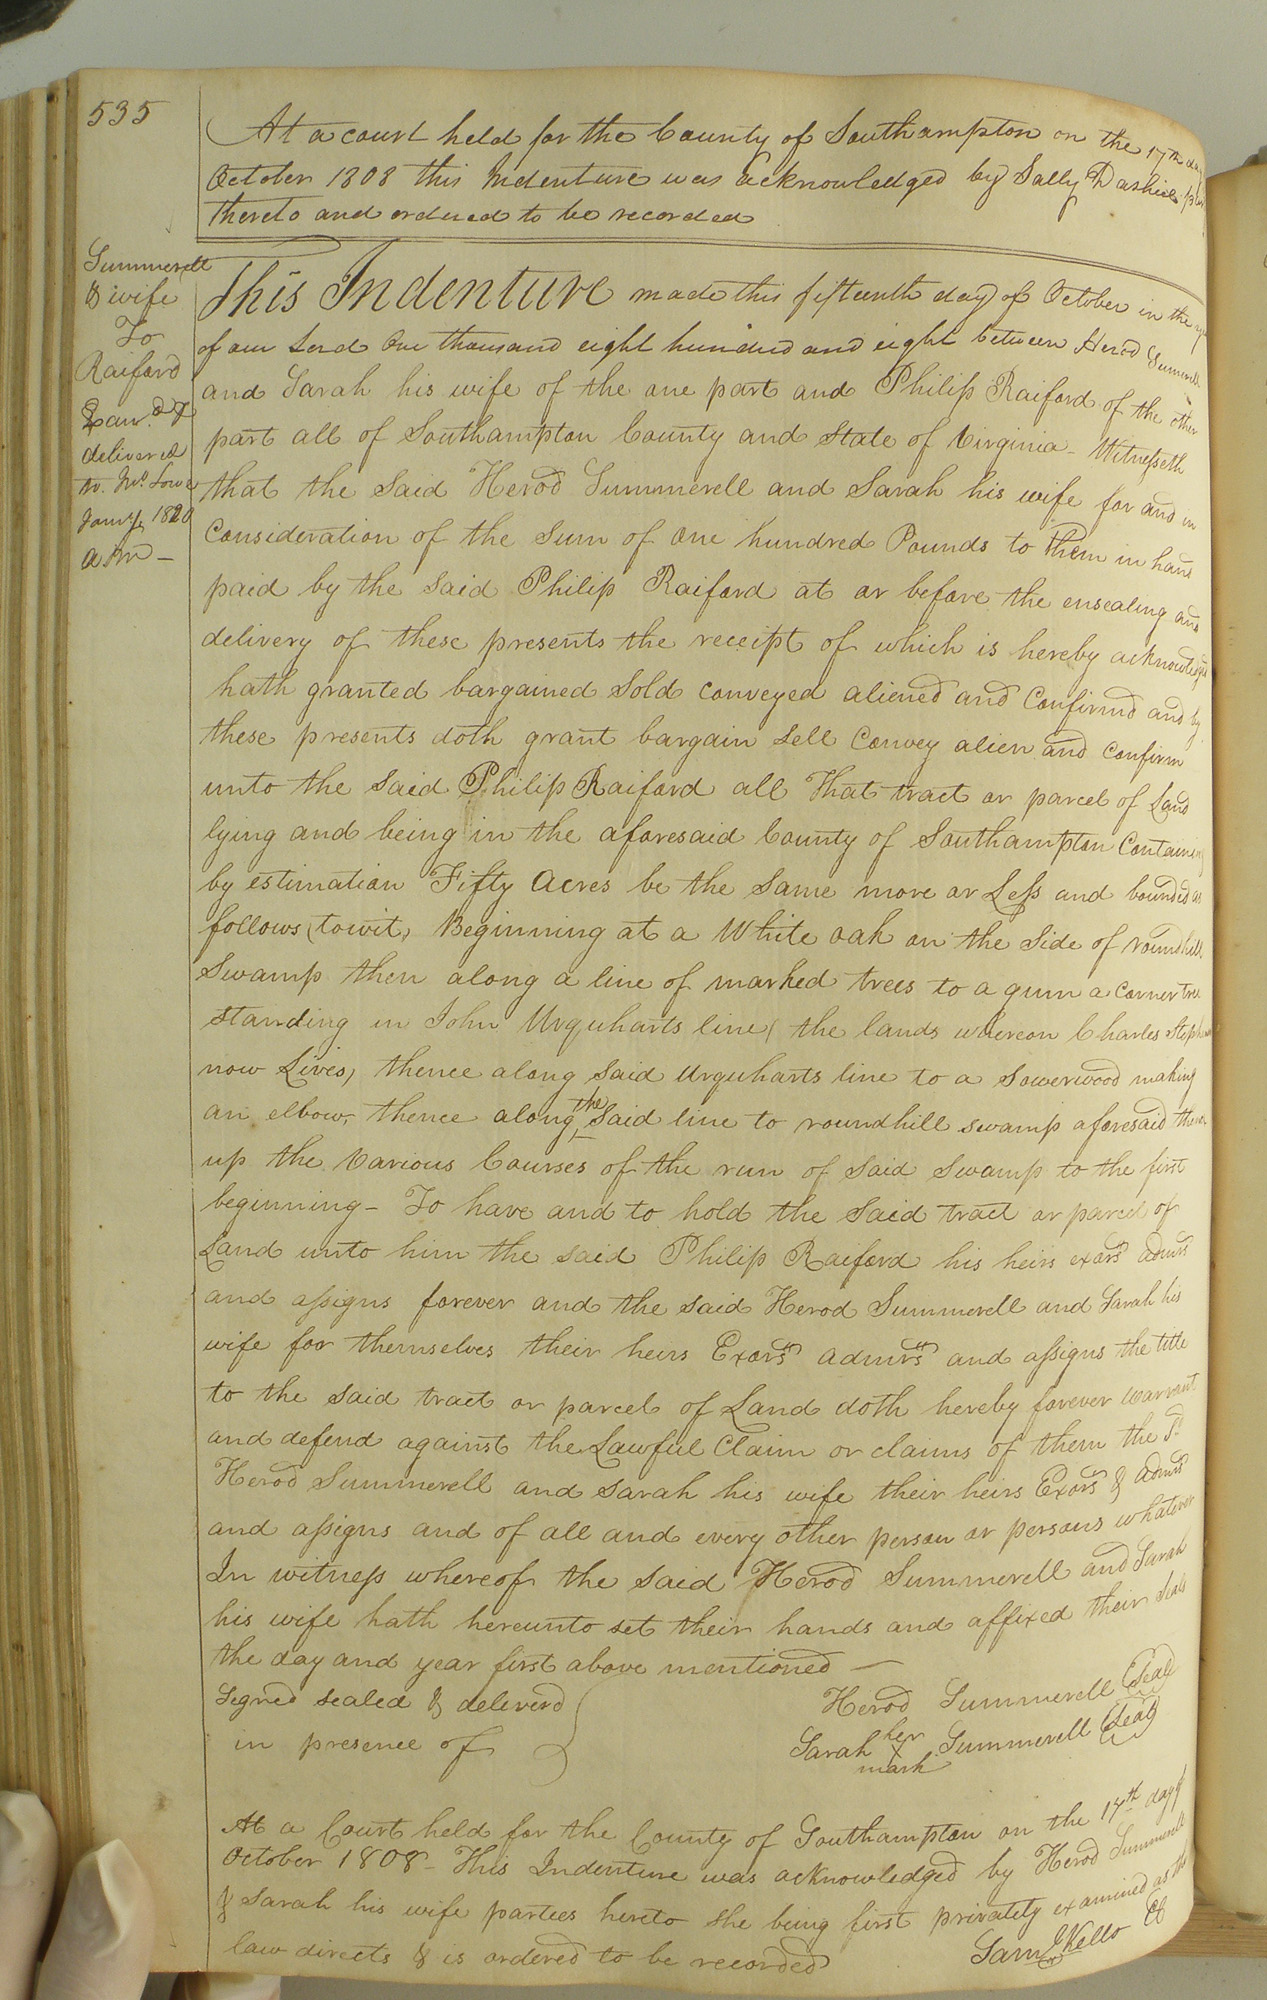 535
At a court held for the County of Southampton on the 17th day
October 1808 this Indenture was acknowledged by Sally Dashiel
thereto and ordered to be recorded
Summerell
& wife
To
Raiford
Exam.d &
delivered
to
Jany 1820
This Indenture made this fifteenth day of October in the
of our Lord One thousand eight hundred and eight between Herod Summerell
and Sarah his wife of the one part and Philip Raiford of the other
part all of Southampton County and State of Virginia - Witnesseth
that the Said Herod Summerell and Sarah his wife for and in
Consideration of the Sum of One hundred Pounds to them in hand
paid by the Said Philip Raiford at or before the ensealing and
delivery of these presents the receipt of which is hereby acknowledged
hath granted bargained Sold conveyed aliened and Confirmd and by
these presents doth grant bargain Sell Convey alien and Confirm
unto the Said Philip Raiford all That tract or parcel of Land
lying and being in the aforesaid County of Southampton Containing
by estimation Fifty Acres be the Same more or Less and bounded as
follows (towit) Beginning at a White oak on the Side of roundhill
Swamp then along a line of marked trees to a gum a Corner tree
Standing in John Urquharts line (the lands whereon Charles
now Lives) thence along Said Urquharts line to a Sowerwood making
an elbow, thence along the Said line to roundhill swamp aforesaid thence
up the Various Courses of the run of Said Swamp to the first
beginning - To have and to hold the Said tract or parcel of
Land unto him the said Philip Raiford his heirs exors admrs
and assigns forever and the said Herod Summerell and Sarah his
wife for themselves their heirs Exors admrs and assigns the title
to the said tract or parcel of Land doth hereby forever warrant
and defend against the Lawful Claim or claims of them the Sd
Herod Summerell and Sarah his wife their heirs Exors & admrs
and assigns and of all and every other person or persons whatever
In witness whereof the said Herod Summerell and Sarah
his wife hath hereunto set their hands and affixed their Seals
the day and year first above mentioned —
Signed sealed & deliverd
in presence of
Herod Summerell (Seal)
Sarah her X mark Summerell (Seal)
At a Court held for the County of Southampton on the 17th day of
October 1808 - This Indenture was acknowledged by Herod Summerell
& Sarah his wife parties hereto She being first privately examined as the
law directs & is ordered to be recorded
Saml Kello CC